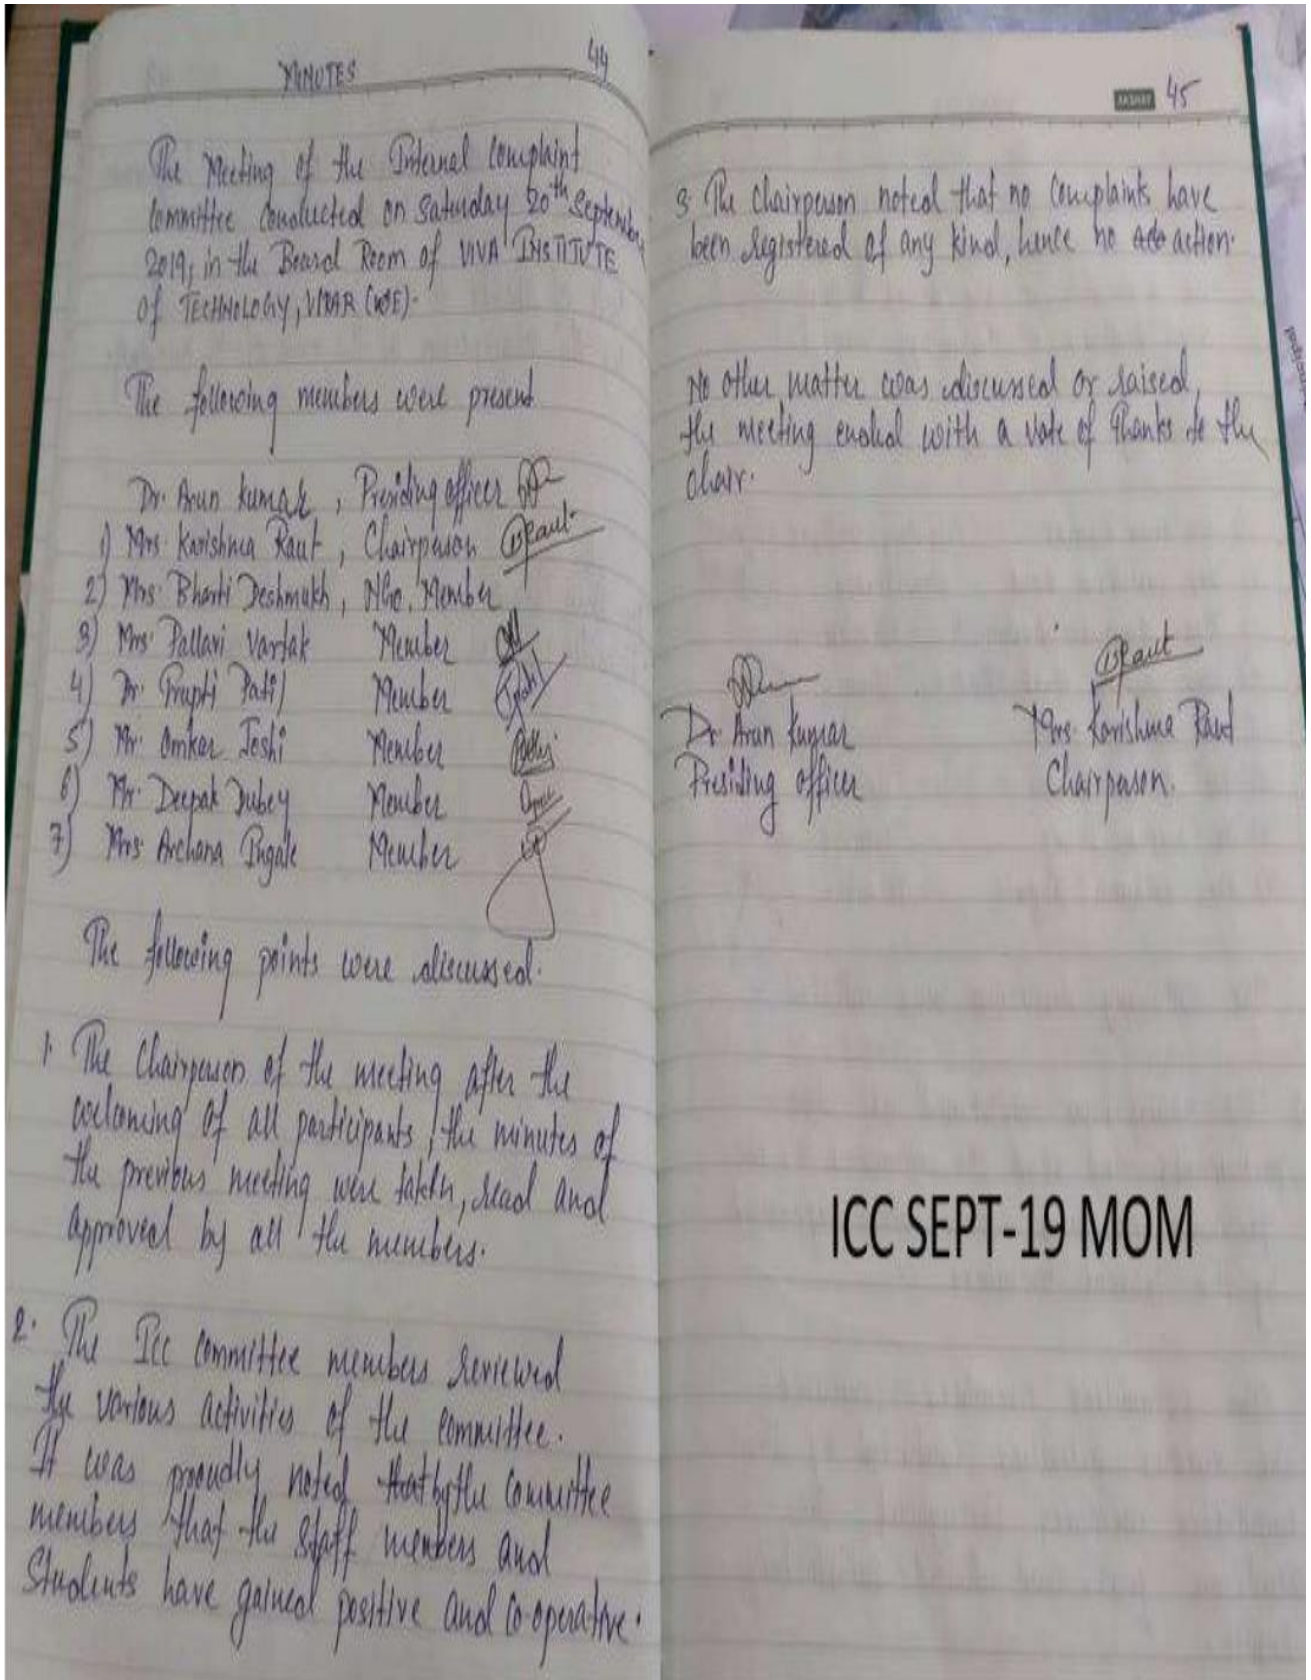 MINUTES
44
The Meeting of the Internal Complaint
Committee conducted on Saturday 20th September
2019, in the Board Room of VIVA INSTITUTE
of TECHNOLOGY, VIRAR
The following members were present
Dr. Arun Kumar, Presiding officer
1) Mrs Karishma Raut, Chairperson Raut
2) Mrs. Bharti Deshmukh, NGO. Member
3) Mrs. Pallavi Vartak Member
4) Dr. Trupti Patil Member
5) Mr. Omkar Joshi Member
6) Mr. Deepak Dubey Member
7) Mrs. Archana Ingale Member
The following points were discussed.
1. The Chairperson of the meeting after the
welcoming of all participants, the minutes of
the previous meeting were taken, read and
approved by all the members.
2. The Icc committee members reviewed
the various activities of the committee.
It was proudly noted that by the committee
members that the staff members and
Students have gained positive and co-operative.
AKSHAY 45
3. The Chairperson noted that no complaints have
been registered of any kind, hence no action.
No other matter was discussed or raised,
the meeting ended with a vote of thanks to the
chair.
Raut
Dr Arun Kumar Mrs. Karishma Raut
Presiding officer Chairperson.
ICC SEPT-19 MOM